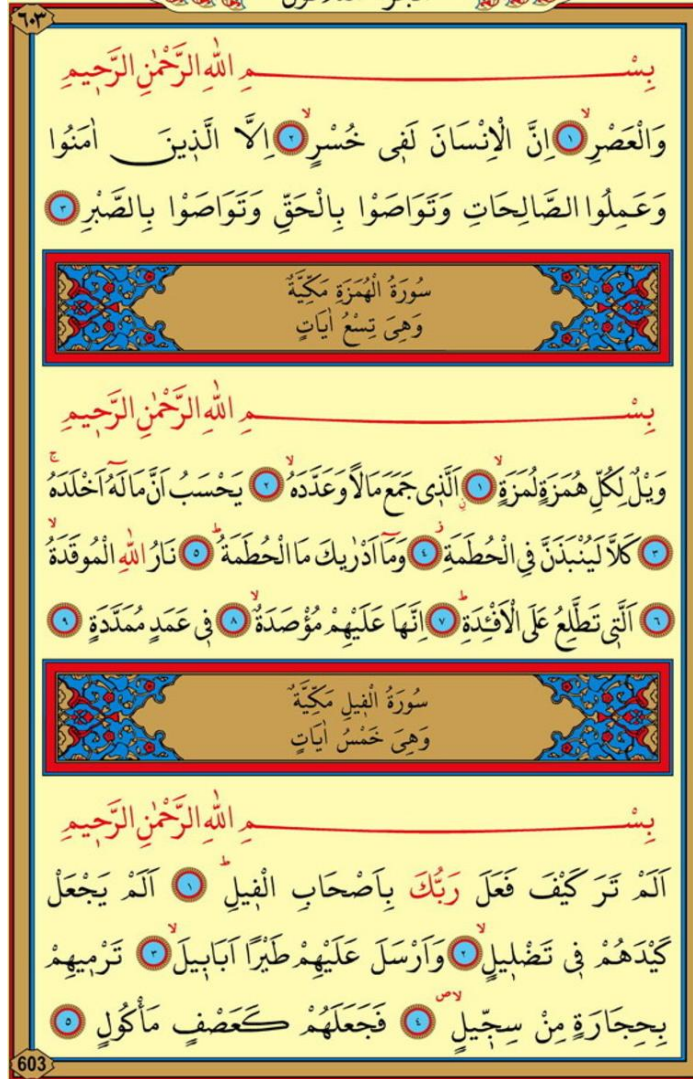 ٦٠٣
بِسْمِ اللّٰهِ الرَّحْمٰنِ الرَّحٖيمِ
وَالْعَصْرِۙ ﴿١﴾ اِنَّ الْاِنْسَانَ لَفٖى خُسْرٍۙ ﴿٢﴾ اِلَّا الَّذٖينَ اٰمَنُوا
وَعَمِلُوا الصَّالِحَاتِ وَتَوَاصَوْا بِالْحَقِّ وَتَوَاصَوْا بِالصَّبْرِ ﴿٣﴾
سُورَةُ الْهُمَزَةِ مَكِّيَّةٌ
وَهِىَ تِسْعُ اٰيَاتٍ
بِسْمِ اللّٰهِ الرَّحْمٰنِ الرَّحٖيمِ
وَيْلٌ لِكُلِّ هُمَزَةٍ لُمَزَةٍۙ ﴿١﴾ اَلَّذٖى جَمَعَ مَالًا وَعَدَّدَهُۙ ﴿٢﴾ يَحْسَبُ اَنَّ مَالَهُٓ اَخْلَدَهُۚ
﴿٣﴾ كَلَّا لَيُنْبَذَنَّ فِى الْحُطَمَةِؗ ﴿٤﴾ وَمَٓا اَدْرٰيكَ مَا الْحُطَمَةُؕ ﴿٥﴾ نَارُ اللّٰهِ الْمُوقَدَةُۙ
﴿٦﴾ اَلَّتٖى تَطَّلِعُ عَلَى الْاَفْـِٔدَةِؕ ﴿٧﴾ اِنَّهَا عَلَيْهِمْ مُؤْصَدَةٌۙ ﴿٨﴾ فٖى عَمَدٍ مُمَدَّدَةٍ ﴿٩﴾
سُورَةُ الْفٖيلِ مَكِّيَّةٌ
وَهِىَ خَمْسُ اٰيَاتٍ
بِسْمِ اللّٰهِ الرَّحْمٰنِ الرَّحٖيمِ
اَلَمْ تَرَ كَيْفَ فَعَلَ رَبُّكَ بِاَصْحَابِ الْفٖيلِؕ ﴿١﴾ اَلَمْ يَجْعَلْ
كَيْدَهُمْ فٖى تَضْلٖيلٍۙ ﴿٢﴾ وَاَرْسَلَ عَلَيْهِمْ طَيْرًا اَبَابٖيلَۙ ﴿٣﴾ تَرْمٖيهِمْ
بِحِجَارَةٍ مِنْ سِجّٖيلٍۙ ﴿٤﴾ فَجَعَلَهُمْ كَعَصْفٍ مَأْكُولٍ ﴿٥﴾
603